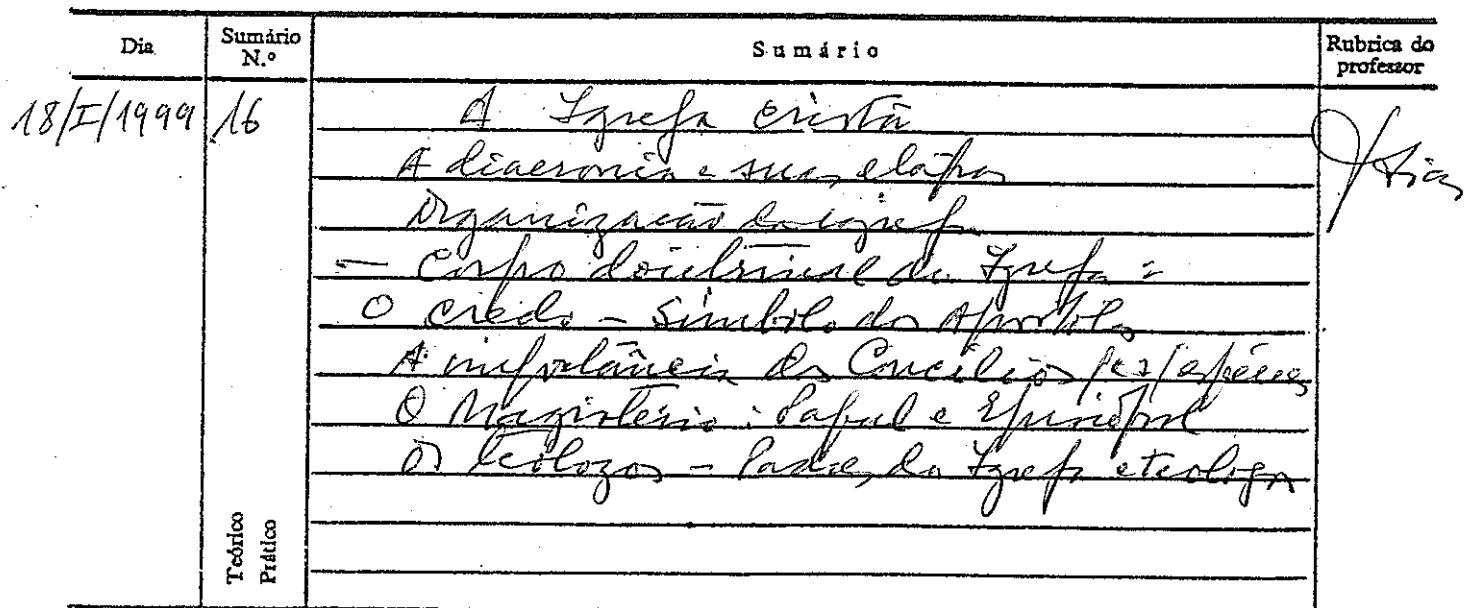 Dia Sumário N.º Sumário Rubrica do professor
18/I/1999 16 A Igreja Cristã
A diacronia e suas etapas
Organização da igreja
— Corpo doutrinal da Igreja :
O Credo — Símbolo dos Apóstolos
A importância dos Concílios
O Magistério : Papal e Episcopal
Os teólogos — Padres da Igreja e teólogos
Teórico
Prático
Dias